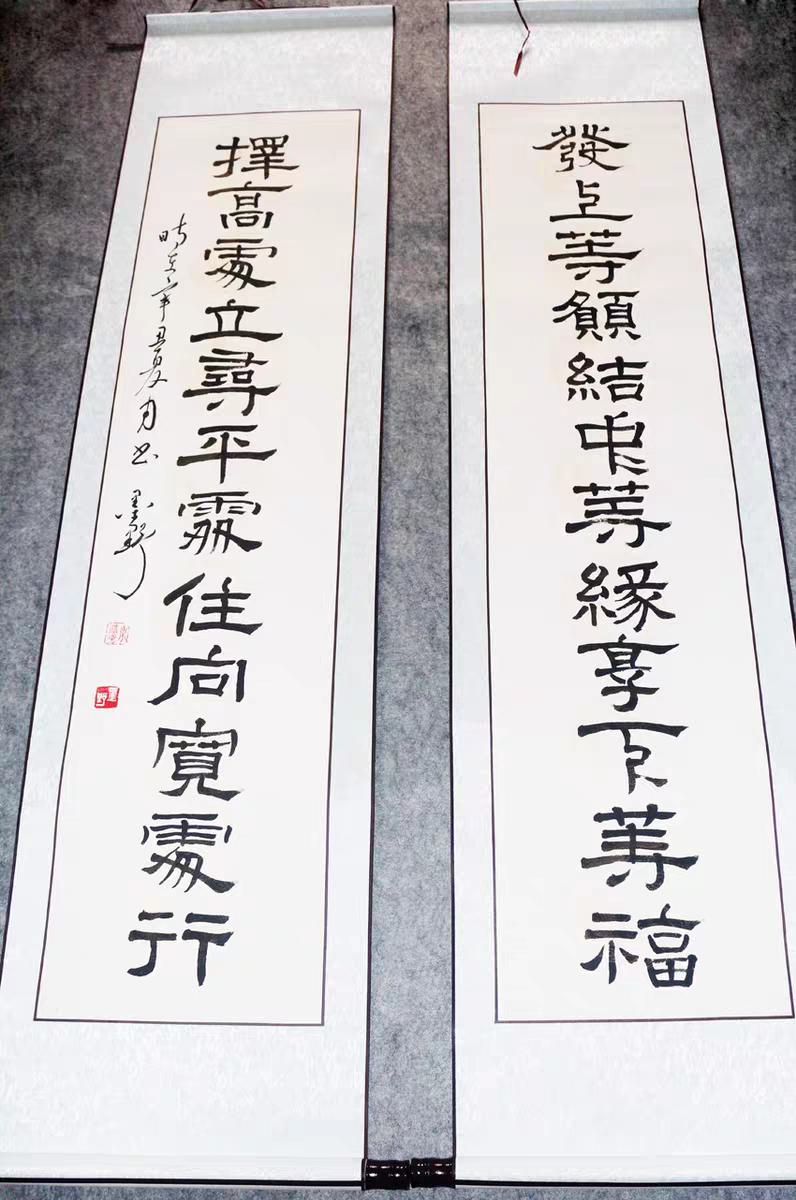 發上等願結中等緣享下等福
擇高處立尋平處住向寬處行
時在辛丑夏月書